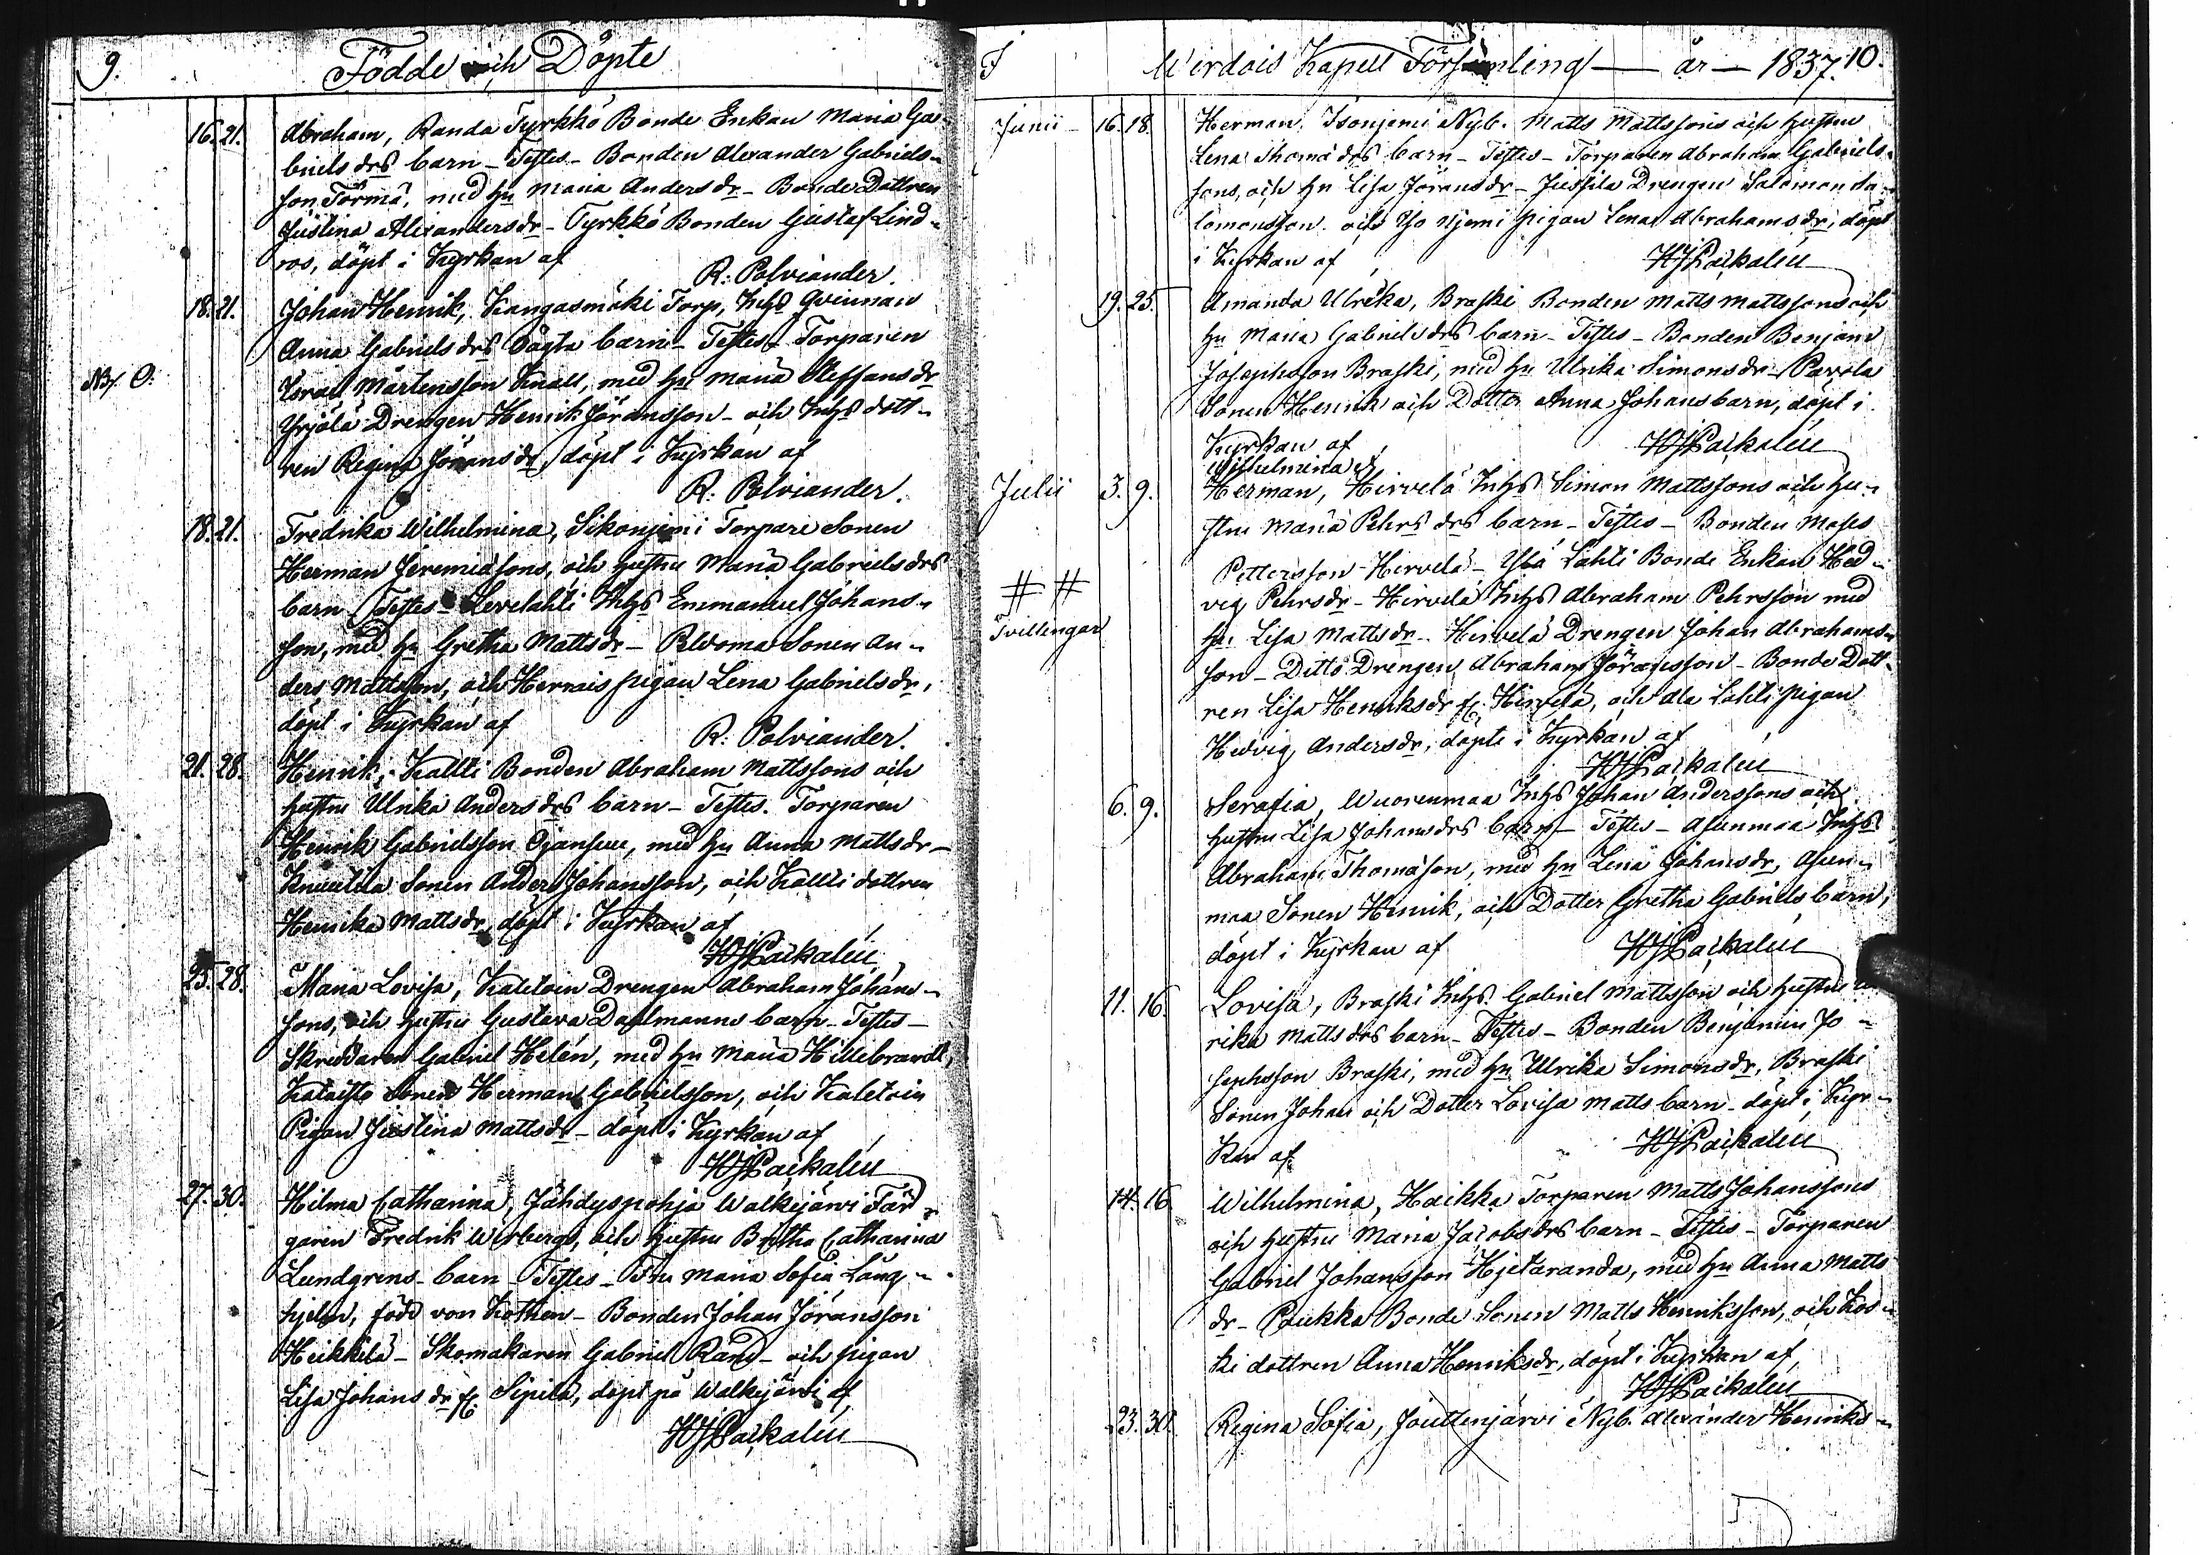 9.
Födde och Döpte
16. 21. Abraham, Randa Tyrkkö Bonde Enkan Maria Ga-
briels drs barn – Testes – Bonden Alexander Gabriels-
son Törmä, med hu Maria Anders dr – Bonde Dottren
Justina Alexandersdr – Tyrkkö Bonden Gustaf Lind-
ros, döpt i Kyrkan af
R: Polviander.
18. 21. Johan Henrik, Kangasmäki Torp, Inhs Qvinnan
Anna Gabriels drs oägta barn – Testes – Torparen
No/. O:
Israel Mårtensson Knall, med hu Maria Steffansdr
Yrjölä Drengen Henrik Jöransson – och Inhs dott-
ren Regina Jöransdr, döpt i Kyrkan af
R: Polviander.
18. 21. Fredrika Wilhelmina, Sikonjemi Torpare Sonen
Herman Jeremiæsons, och hustru Maria Gabriels drs
barn – Testes – Inhs Emmanuel Johans-
son, med hu Gretha Mattsdr – Sonen An-
ders Mattsson, och Hernais pigan Lena Gabrielsdr,
döpt i Kyrkan af
R: Polviander.
21. 28. Henrik, Kallti Bonden Abraham Mattssons och
hustru Ulrika Anders drs barn – Testes. Torparen
Henrik Gabrielsson Ojansuu, med hu Anna Mattsdr –
Knuutila Sonen Anders Johansson, och Kallti dottren
Henrika Mattsdr, döpt i Kyrkan af
HJPaikalén
25. 28. Maria Lovisa, Kaletoin Drengen Abraham Johans-
sons, och hustru Gustava Dahlmanns barn – Testes –
Skreddaren Gabriel Helén, med hu Maria Hillebrandt,
Kataisto Sonen Herman Gabrielsson, och Kaletoin
Pigan Justina Mattsdr – döpt i Kyrkan af
HJPaikalén
27. 30. Hilma Catharina, Jähdyspohja Walkejärvi Fär-
garen Fredrik Wirbergs, och hustru Britha Catharina
Lundgrens barn – Testes – Fru Maria Sofia Lång-
hjelm, född von Kothen – Bonden Johan Jöransson
Heikkilä – Skomakaren Gabriel Rand – och pigan
Lisa Johans dr fr. Sipilä, döpt på Walkejärvi af
HJPaikalén
I Wirdois Kapell Församling – år – 1837. 10.
Junii 16. 18. Herman, Isonjemi Nyb. Matts Mattssons och hustru
Lena Thomæ drs barn – Testes – Torparen Abraham Gabriels-
sons, och hu Lisa Jöransdr – Jussila Drengen Salomon Sa-
lomonsson och Iso njemi pigan Lena Abrahamsdr, döpt
i Kyrkan af
HJPaikalén
19. 25. Amanda Ulrika, Braski Bonden Matts Mattssons och
hu Maria Gabriels drs barn – Testes – Bonden Benjam
Josephsson Braski, med hu Ulrika Simonsdr – Pavola
Sonen Henrik och Dotter Anna Johans barn, döpt i
Kyrkan af
HJPaikalén
Wilhelmina &
Julii 3. 9. Herman, Hirvelä Inhs Simon Mattssons och hu-
stru Maria Pehrs drs barn – Testes – Bonden Moses
Pettersson Hirvelä – Ylä Lahti Bonde Enkan Hed-
# #
vig Pehrsdr – Hirvelä Inhs Abraham Pehrsson med
Tvillingar
hu Lisa Mattsdr – Hirvelä Drengen Johan Abrahams-
son – Ditto Drengen Abraham Jöransson – Bonde Dott-
ren Lisa Henriksdr fr. Hirvelä, och Ala Lahti pigan
Hedvig Andersdr, döpte i Kyrkan af
HJPaikalén
6. 9. Serafia, Wuorenmaa Inhs Johan Anderssons och
hustru Lisa Johans drs barn – Testes – Asunmaa Inhs
Abraham Thomæson, med hu Lena Johansdr, Asun-
maa Sonen Henrik, och Dotter Gretha Gabriels barn,
döpt i Kyrkan af
HJPaikalén
11. 16. Lovisa, Braski Inhs Gabriel Mattsson och hustru Ul
rika Matts drs barn – Testes – Bonden Benjamin Jo-
sephsson Braski, med hu Ulrika Simonsdr, Braski
Sonen Johan och Dotter Lovisa Matts barn – döpt i Kyr-
kan af
HJPaikalén
14. 16. Wilhelmina, Haikka Torparen Matts Johanssons
och hustru Maria Jacobs drs barn – Testes – Torparen
Gabriel Johansson Hjetaranda, med hu Anna Matts
dr – Poukka Bonde Sonen Matts Henriksson, och Kos-
ki dottren Anna Henriksdr, döpt i Kyrkan af
HJPaikalén
23. 30. Regina Sofia, Jouttenjärvi Nyb. Alexander Henriks-